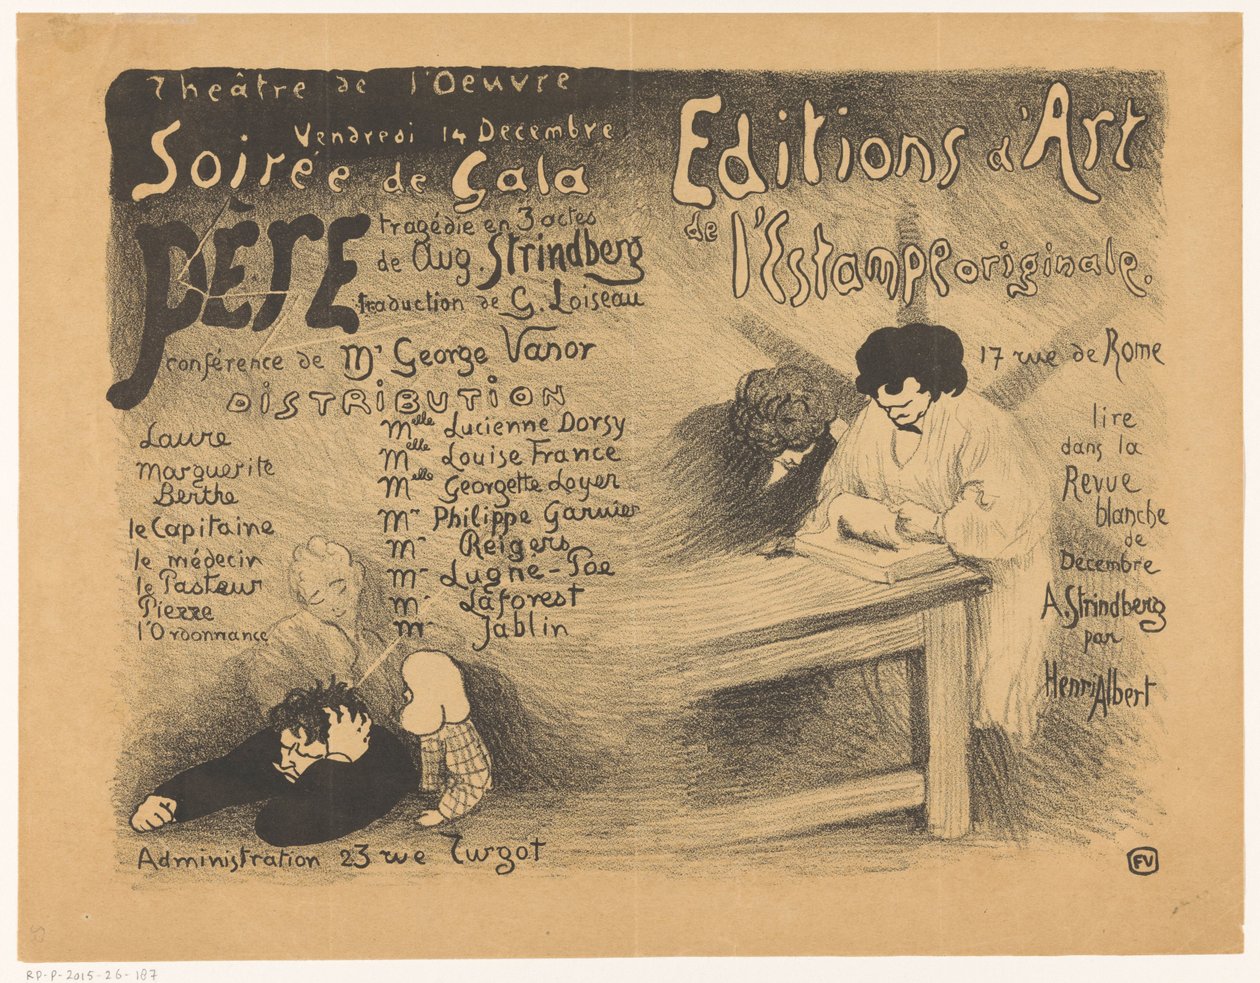 Theâtre de l'Oeuvre
Vendredi 14 Decembre
Soirée de Gala
PÈRE
tragédie en 3 actes
de Aug. Strindberg
traduction de G. Loiseau
conférence de Mr George Vanor
DISTRIBUTION
Laure Melle Lucienne Dorsy
Marguerite Melle Louise France
Berthe Melle Georgette Loyer
le Capitaine Mr Philippe Garnier
le médecin Mr Reigers
le Pasteur Mr Lugne-Poe
Pierre Mr Laforest
l'Ordonnance Mr Jablin
Administration 23 rue Turgot
Editions d'Art
de l'Estampe originale.
17 rue de Rome
lire
dans la
Revue
blanche
de
Décembre
A. Strindberg
par
Henri Albert
FV
RP-P-2015-26-187